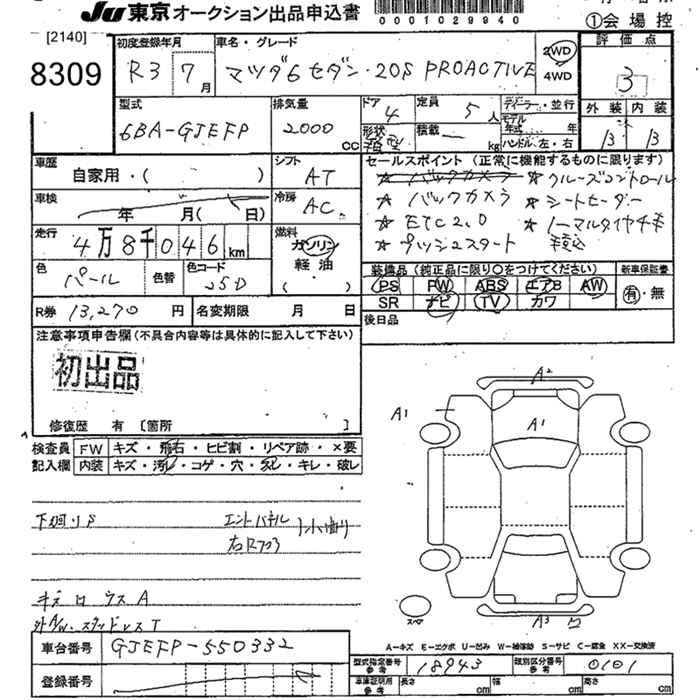 JU東京オークション出品申込書
0001029940
①会場控
[2140]
8309
初度登録年月
R3 7月
車名・グレード
マツダ6 セダン・20S PROACTIVE
2WD
4WD
評価点
3
外装 内装
B B
型式
6BA-GJEFP
排気量
2000
CC
ドア
4
定員
5
人
形状
積載
kg
ディーラー・並行
モデル
年式 年
ハンドル 左・右
車歴
自家用・( )
シフト
AT
車検
年 月( 日)
冷房
AC
走行
4万8千046km
燃料
ガソリン
軽油
( )
色
パール
色替
色コード
25D
R券 13,270 円
名変期限 月 日
セールスポイント (正常に機能するものに限ります)
☆バックカメラ ☆クルーズコントロール
☆バックカメラ ☆シートセーター
☆ETC2.0 ☆ノーマルタイヤ4本
☆プッシュスタート 積込
装備品 (純正品に限り○をつけてください)
PS PW ABS エアB AW
SR ナビ TV カワ
新車保証書
有・無
後日品
注意事項申告欄(不具合内容等は具体的に記入して下さい)
初出品
修復歴 有 [箇所 ]
検査員
記入欄
FW キズ・飛石・ヒビ割・リペア跡・×要
内装 キズ・汚レ・コゲ・穴・欠レ・キレ・破レ
下廻りS
エンドパネル
右Rフロ
小曲り
キズ ロ ウス A
外AW・スタッドレス T
A2
A1
A1
A3
スペア
A=キズ E=エクボ U=凹み W=補修跡 S=サビ C=腐食 XX=交換済
車台番号
GJEFP-550332
登録番号
型式指定番号
参考
18943
類別区分番号
参考
0101
車庫証明用
参考
長さ cm 幅 cm 高さ cm